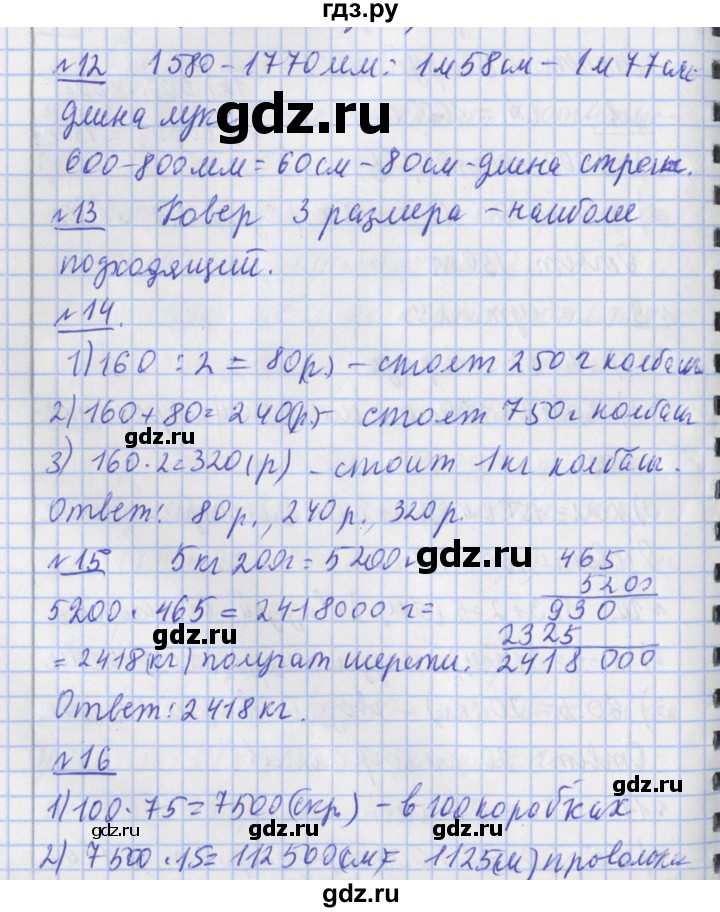 гдз.ру
№12 1580-1770мм = 1м58см - 1м77см-
длина лука
gdz.ru
600-800мм = 60см-80см-длина стрелы.
№13 Ковер 3 размера - наиболее
подходящий.
№14.
1) 160 : 2 = 80(р) - стоят 250г колбасы
2) 160 + 80 = 240(р) - стоят 750г колбасы
gdz.ru
3) 160 · 2 = 320(р) - стоит 1кг колбасы.
Ответ: 80р., 240р., 320р.
№15 5кг 200г = 5200г 465
gdz.ru
5200
5200 · 465 = 2418000 г = 930
gdz.ru
2325
= 2418(кг) получат шерсти. 2418 000
Ответ: 2418кг.
№16
1) 100 · 75 = 7500(скр.) - в 100 коробках
gdz.ru gdz.ru
2) 7500 · 15 = 112500(см) = 1125(м) проволоки
gdz.ru